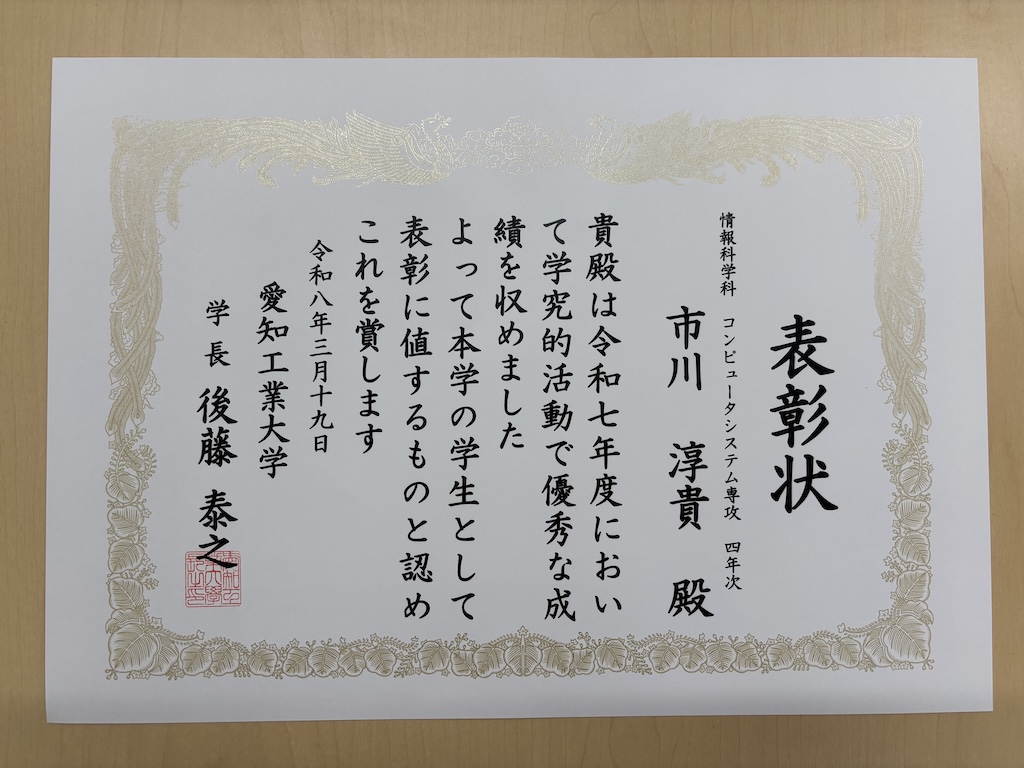 表彰状
情報科学科 コンピュータシステム専攻 四年次
市川 淳貴 殿
貴殿は令和七年度におい
て学究的活動で優秀な成
績を収めました
よって本学の学生として
表彰に値するものと認め
これを賞します
令和八年三月十九日
愛知工業大学
学長 後藤 泰之